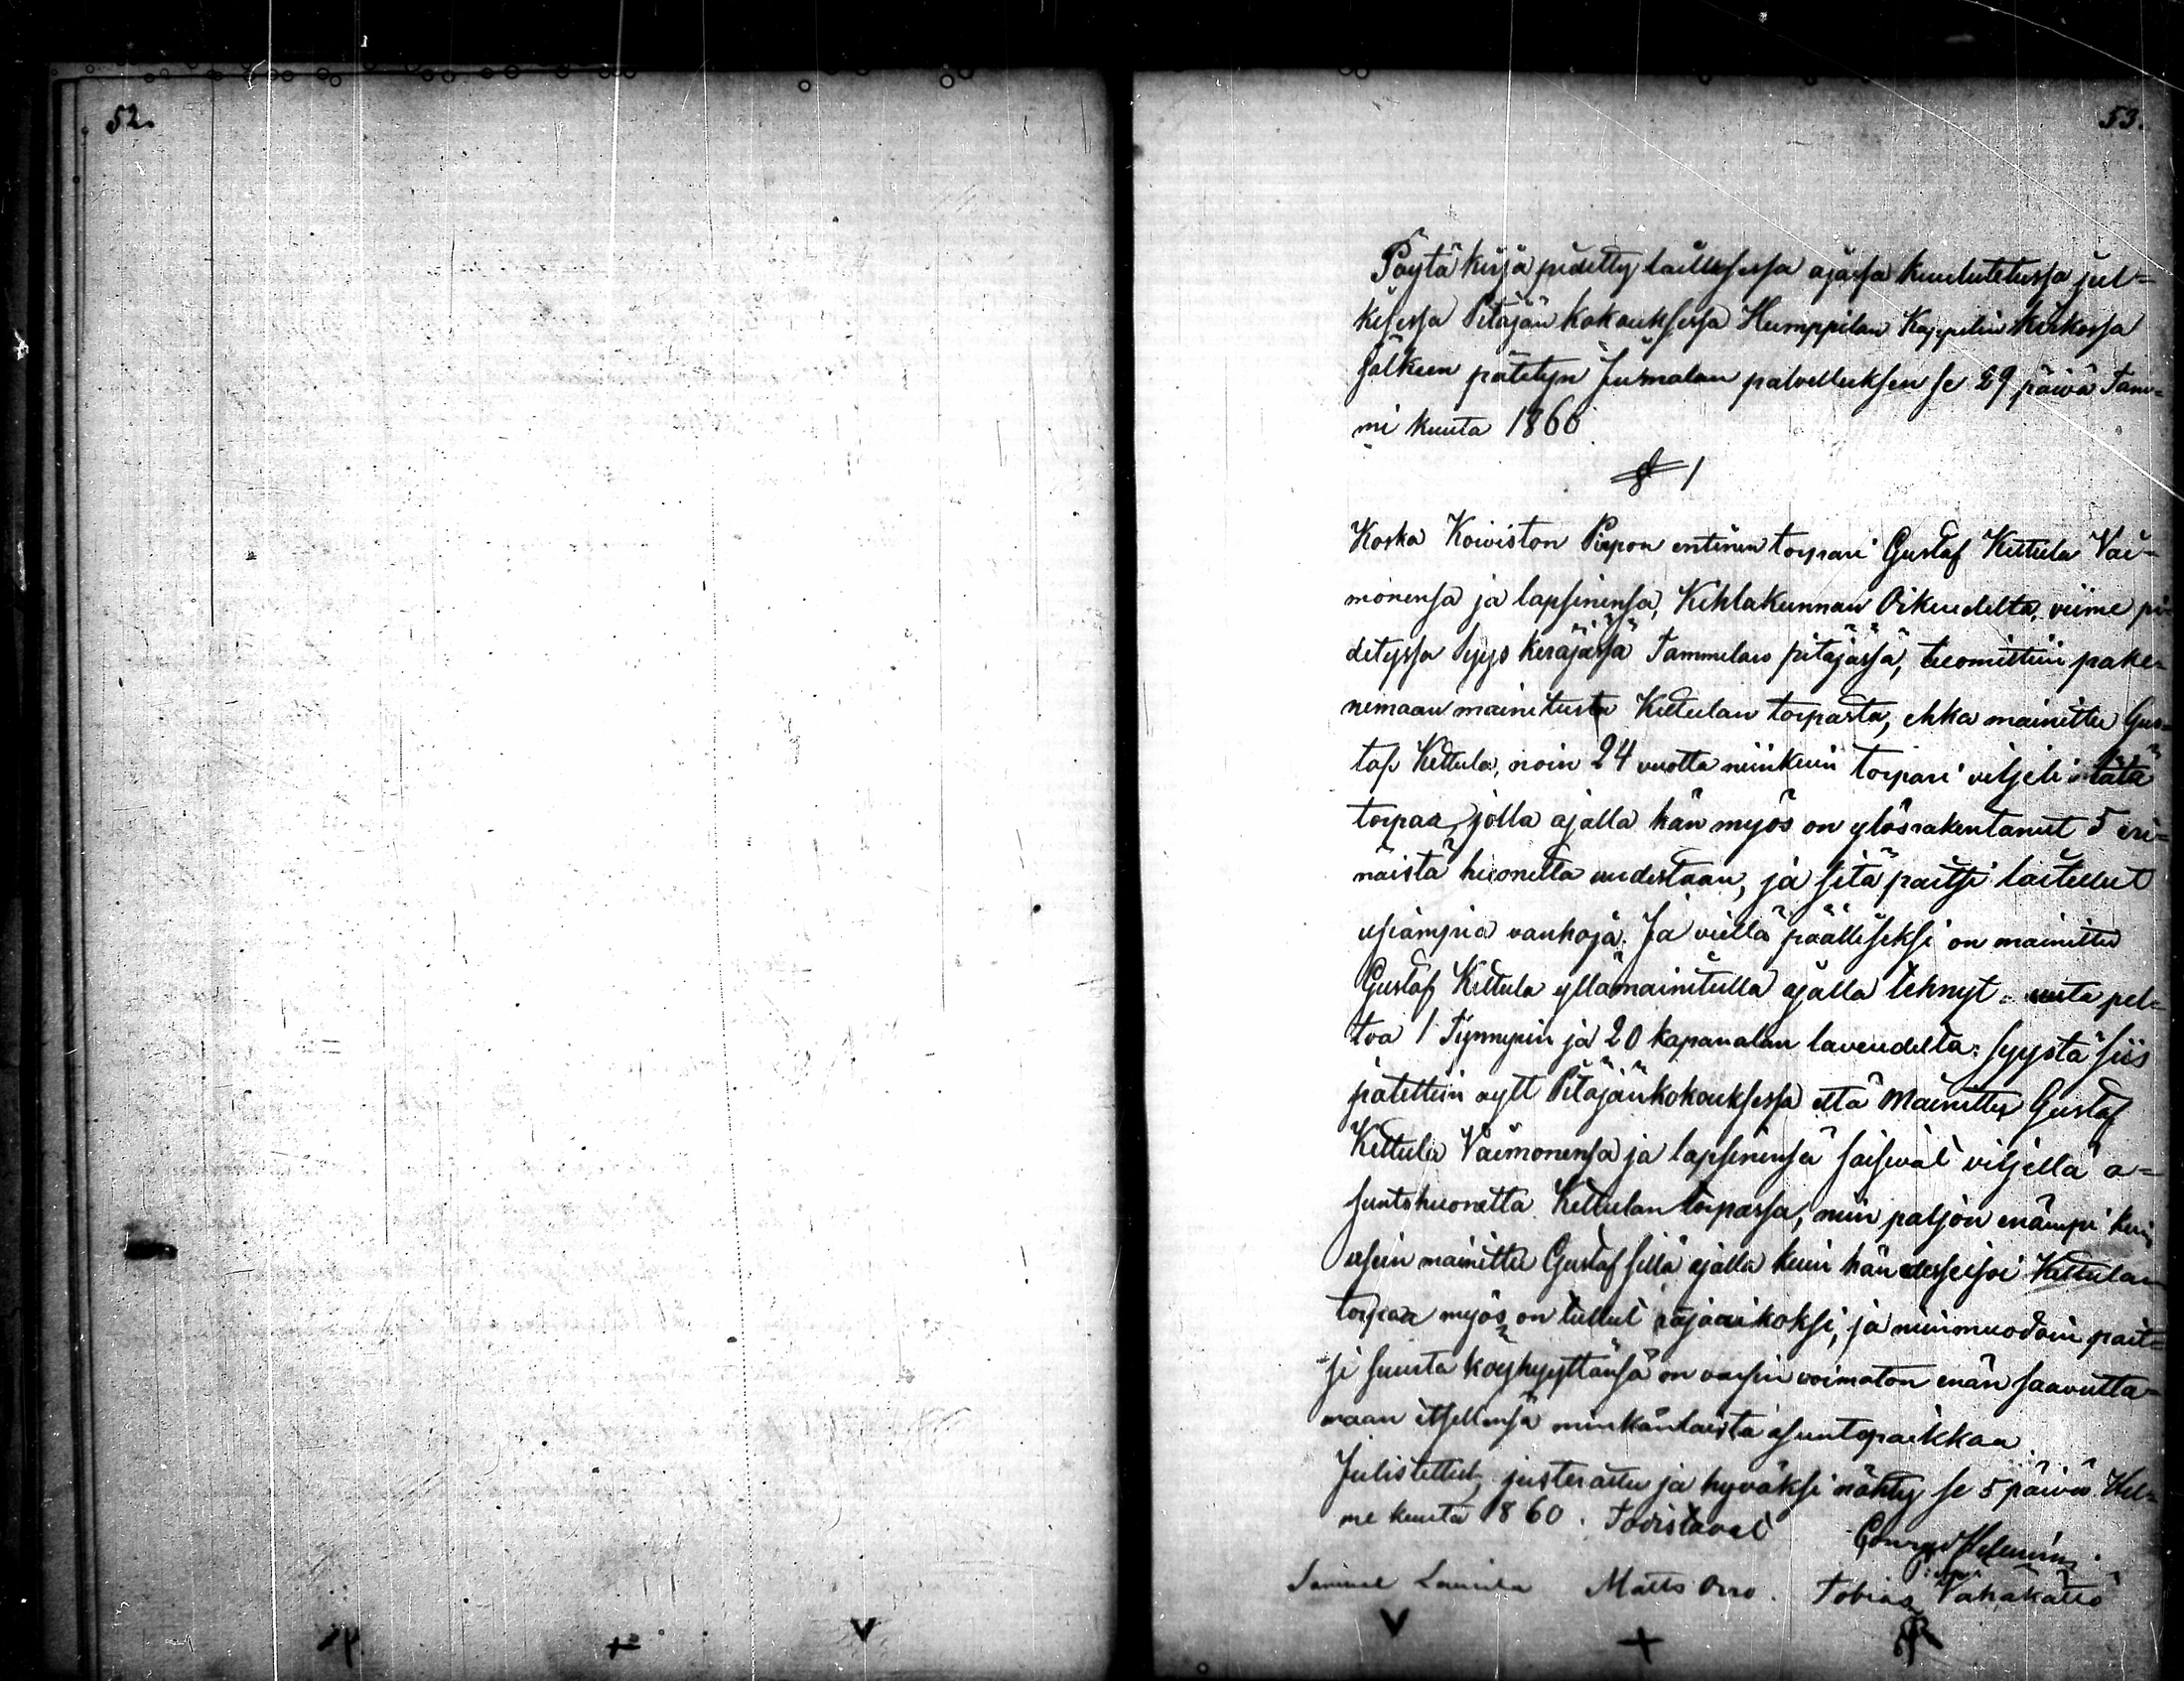 52.
53.
Pöytä kirja pidetty laillisessa ajassa kuulutetussa jul=
kisessa Pitäjän kokouksessa Humppilan Kappelin kirkossa
jälkeen pätetyn Jumalan palvelluksen se 29 päivä Tam=
mi kuuta 1860
§ 1
Koska Koiviston Pispon entinen torpari Gustaf Kettula Vai=
monensa ja lapsinensa, Kihlakunnan Oikeudelta, viime pi
detyssa Syys Keräjässä Tammelan pitäjässä, tuomittiin pake=
nemaan mainitusta Kettulan torpasta, ehka mainittu Gus=
taf Kettula, noin 24 vuotta niinkuin torpari viljeli tätä
torpaa, jolla ajalla hän myös on ylösrakentanut 5 eri=
näistä huonetta uudestaan, ja sitä paitsi laitellut
usiampia vanhoja. Ja viellä päälliseksi on mainittu
Gustaf Kettula yllämainitulla ajalla tehnyt uuta pel=
toa 1 Tynnyrin ja 20 kapanalan laveudelta: syystä siis
pätettiin nytt Pitäjänkokouksessa että Mainittu Gustaf
Kettula Vaimonensa ja lapsinensa saisivat viljellä a=
suntohuonetta Kettulan torpassa, niin paljon enämpi kuin
usein mainittu Gustaf sillä ajalla kuin hän Kettulan
torpaa myös on tullut rajaarikoksi, ja niinmuodoin pait=
si suurta köyhyyttänsä on varsin voimaton enän saavutta=
maan itsellensä minkänlaista asuntopaikkaa.
Julistettu, justerattu ja hyväksi nähty se 5 päivä Hel=
me kuuta 1860. Todistavat
Samuel Laurila Matts Orro. Tobias Vähäkattö